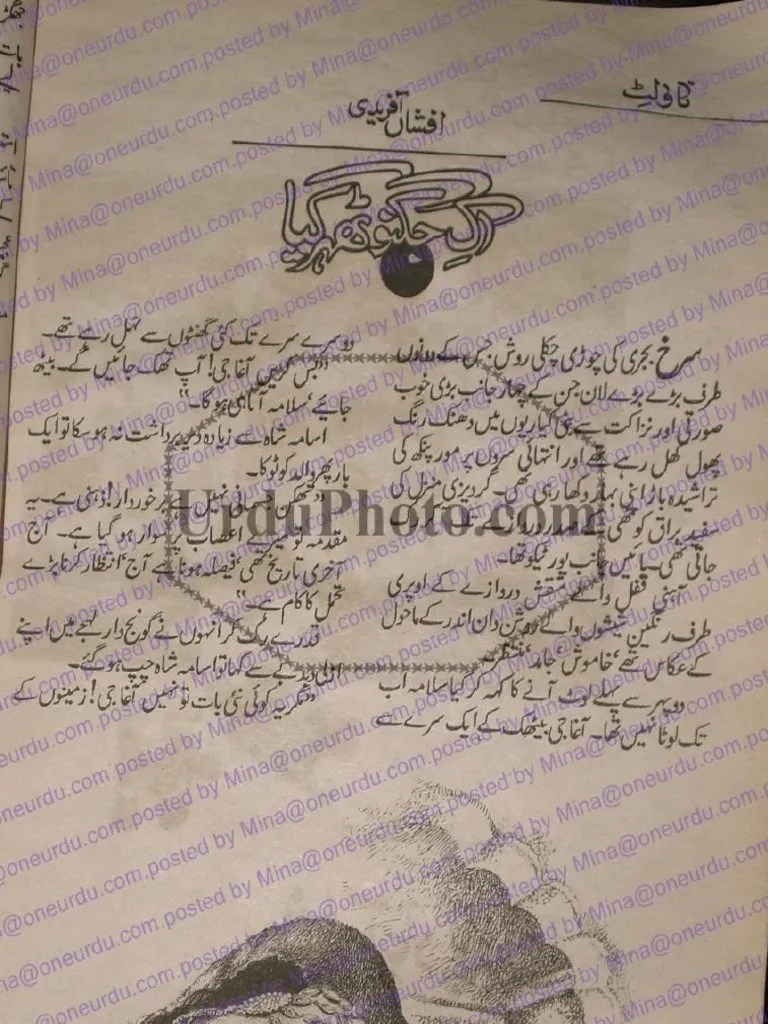 ناولٹ
افشاں آفریدی
اک جگنو ٹھہر گیا
سرخ بجری کی چوڑی چکلی روش جس کے دونوں
طرف بڑے بڑے لان جن کے چہار جانب بڑی خوب
صورتی اور نزاکت سے بنی کیاریوں میں دھنک رنگ
پھول کھل رہے تھے اور انتہائی سروں پر مور پنکھ کی
تراشیدہ باڑ اپنی بہار دکھا رہی تھی۔ گردیزی منزل کی
سفید براق کوٹھی
جاتی تھی۔ پائیں
آہنی قفل والے منقش دروازے کے اوپری
طرف رنگین شیشوں والے روشن دان اندر کے ماحول
کے عکاس تھے، خاموش، جامد، منتظر۔
دوپہر سے پہلے لوٹ آنے کا کہہ کر گیا سلامہ اب
تک لوٹا نہیں تھا۔ آغا جی بیٹھک کے ایک سرے سے
دوسرے سرے تک کئی گھنٹوں سے ٹہل رہے تھے۔
"بس کریں آغا جی! آپ تھک جائیں گے۔ بیٹھ
جائیے، سلامہ آتا ہی ہو گا۔"
اسامہ شاہ سے زیادہ دیر برداشت نہ ہو سکا تو ایک
بار پھر والد کو ٹوکا۔
"تھکن جسمانی نہیں ہے برخوردار! ذہنی ہے۔ یہ
مقدمہ تو میرے اعصاب پر سوار ہو گیا ہے۔ آج
آخری تاریخ تھی، فیصلہ ہونا ہے آج، انتظار کرنا بڑے
تحمل کا کام ہے۔"
قدرے رک کر انہوں نے گونج دار لہجے میں اپنے
ازلی دبدبے سے کہا تو اسامہ شاہ چپ ہو گئے۔
"مگر یہ کوئی نئی بات تو نہیں آغا جی! زمینوں کے
UrduPhoto.com
posted by Mina@oneurdu.com